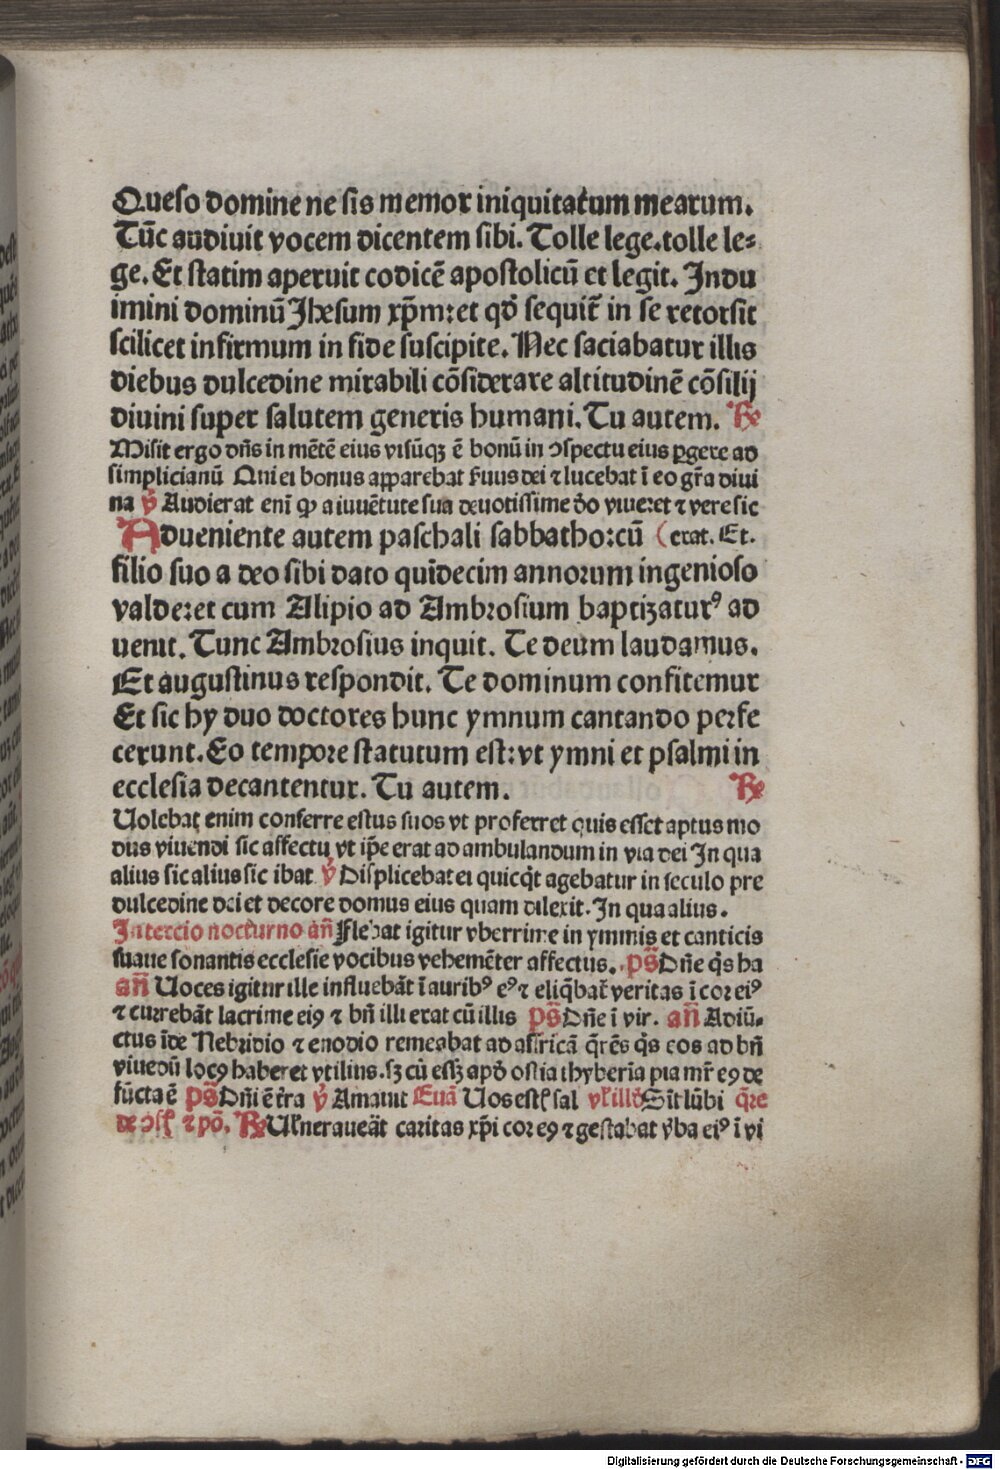 Queso domine ne sis memor iniquitatum mearum.
Tūc audiuit vocem dicentem sibi. Tolle lege.tolle le⸗
ge. Et statim aperuit codicē apostolicū et legit. Indu
imini dominū Jhesum xp̄m:et qđ sequit̄ in se retorsit
scilicet infirmum in fide suscipite. Nec saciabatur illis
diebus dulcedine mirabili cōsiderare altitudinē cōsilij
diuini super salutem generis humani. Tu autem. ℟
Misit ergo dn̄s in mētē eius visūqꝫ ē bonū in ↄspectu eius ꝑgere ad
simplicianū Qui ei bonus apparebat ẜuus dei ⁊ lucebat ī eo gr̄a diui
na ℣ Audierat enī ꝙ a iuuētute sua deuotissime đo viueret ⁊ vere sic
Adueniente autem paschali sabbatho:cū (erat. Et.
filio suo a deo sibi dato quīdecim annorum ingenioso
valde:et cum Alipio ad Ambrosium baptizaturꝰ ad
uenit. Tunc Ambrosius inquit. Te deum laudamus.
Et augustinus respondit. Te dominum confitemur
Et sic hy duo doctores hunc ymnum cantando perfe
cerunt. Eo tempore statutum est:vt ymni et psalmi in
ecclesia decantentur. Tu autem. ℟
Uolebat enim conferre estus suos vt proferret quis esset aptus mo
dus viuendi sic affectu vt ip̄e erat ad ambulandum in via dei In qua
alius sic alius sic ibat ℣ Displicebat ei quicq̄t agebatur in seculo pre
dulcedine dei et decore domus eius quam dilexit. In qua alius.
In tercio nocturno an̄ Flebat igitur vberrime in ymnis et canticis
suaue sonantis ecclesie vocibus vehemēter affectus. ps̄ Dn̄e q̄s ha
an̄ Uoces igitur ille influebāt ī auribꝰ eꝰ ⁊ eliq̄bat̄ veritas ī cor eiꝰ
⁊ currebāt lacrime eiꝰ ⁊ bn̄ illi erat cū illis ps̄ Dn̄e ī vir. an̄ Adiū⸗
ctus īde Nebridio ⁊ euodio remeabat ad affricā q̄rēs q̄s eos ad bn̄
viuedū locꝰ haberet vtilius.sꝫ cū essꝫ apđ ostia thyberīa pia mr̄ eꝰ de
fūcta ē ps̄ Dn̄i ē t̄ra ℣ Amauit Euā Uos estꝭ sal Sīt lūbi q̄re
de ↄsꝭ ⁊ pō. ℟ Ulñeraueāt caritas xp̄i cor eꝰ ⁊ gestabat v̄ba eiꝰ ī vi
Digitalisierung gefördert durch die Deutsche Forschungsgemeinschaft - DFG